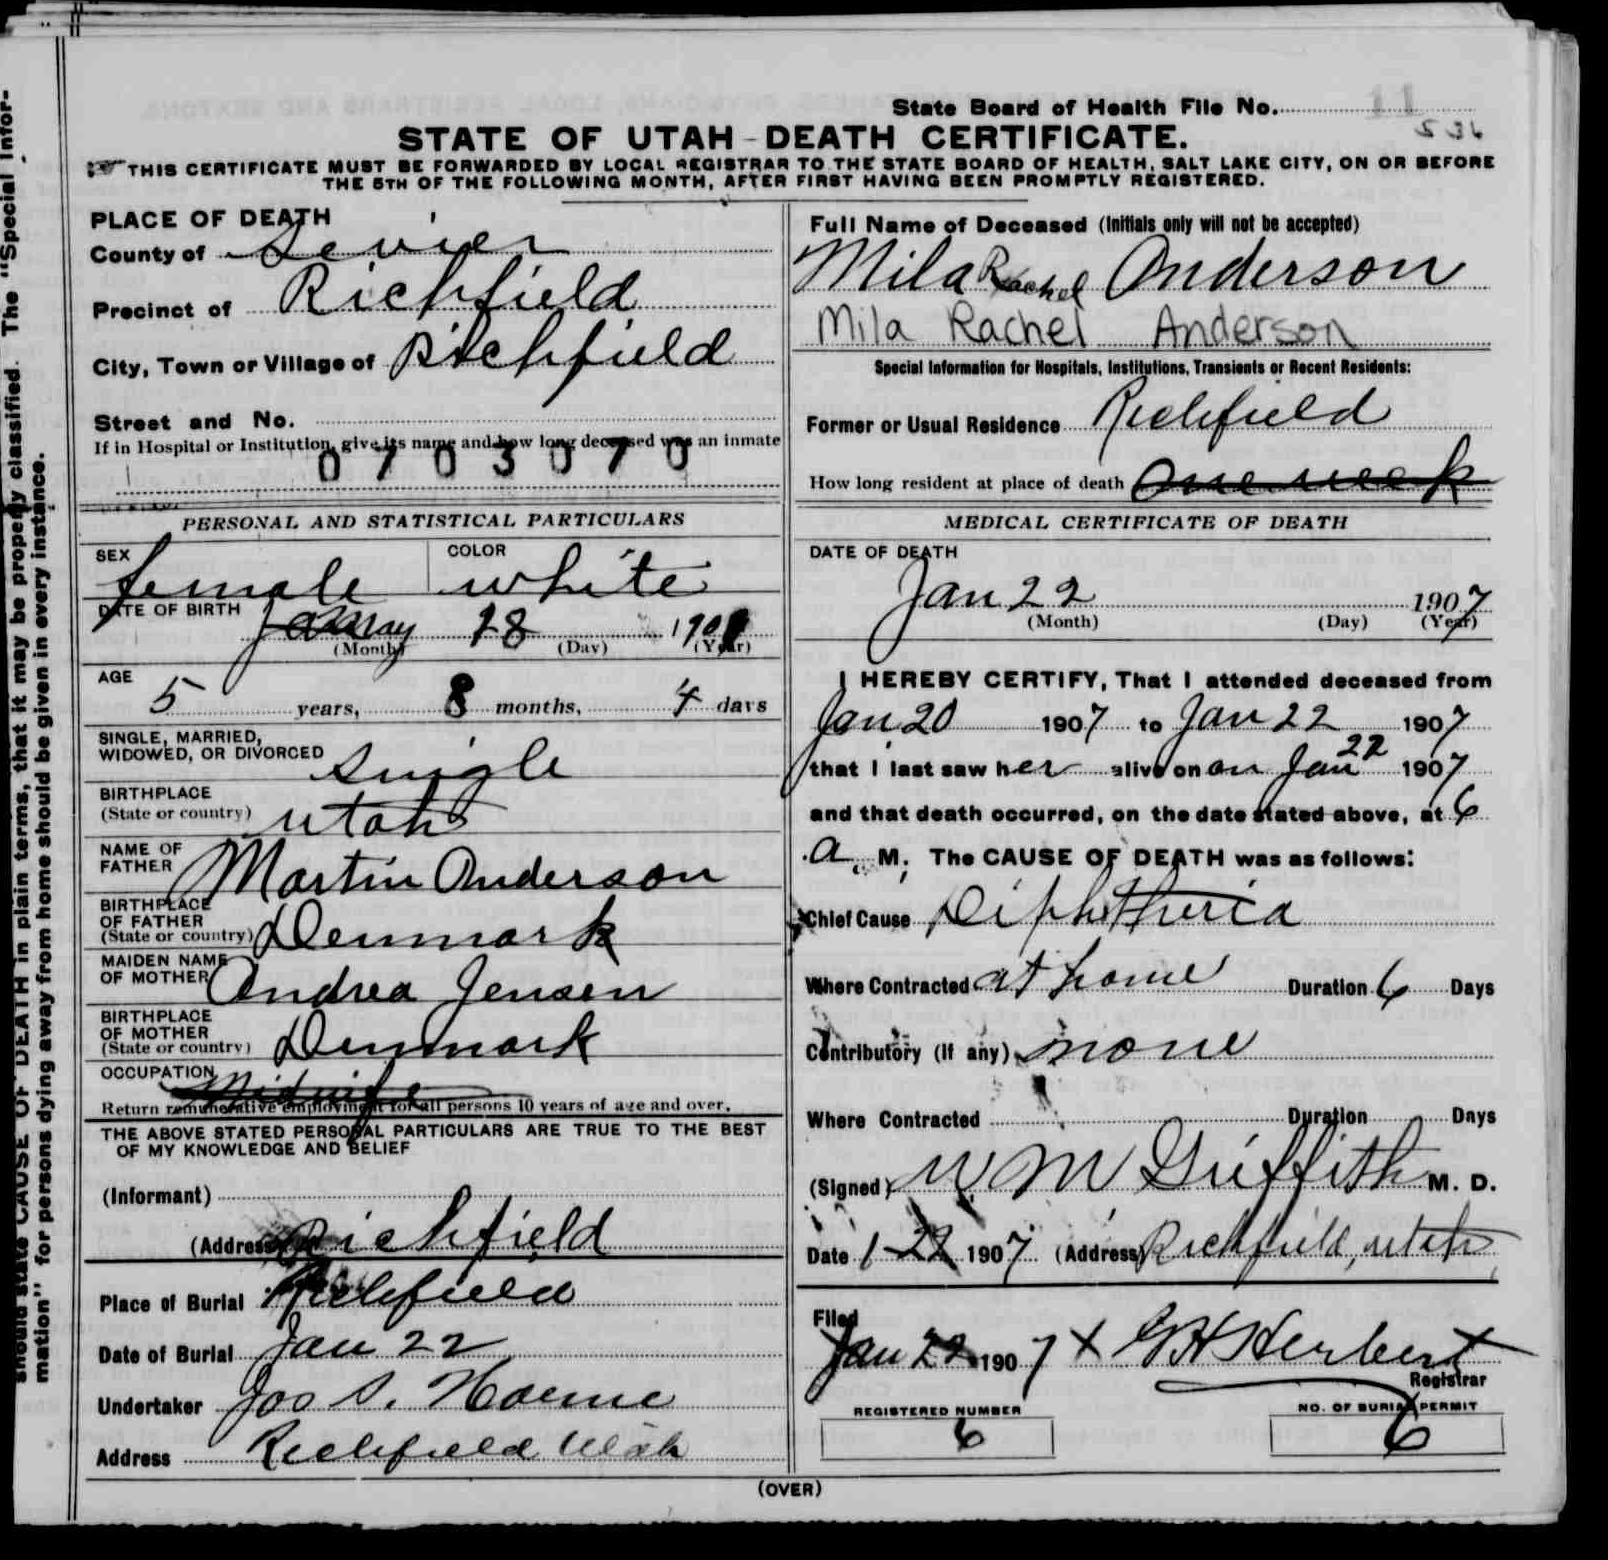 State Board of Health File No. 11
536
STATE OF UTAH - DEATH CERTIFICATE.
THIS CERTIFICATE MUST BE FORWARDED BY LOCAL REGISTRAR TO THE STATE BOARD OF HEALTH, SALT LAKE CITY, ON OR BEFORE
THE 5TH OF THE FOLLOWING MONTH, AFTER FIRST HAVING BEEN PROMPTLY REGISTERED.
PLACE OF DEATH
County of Sevier
Precinct of Richfield
City, Town or Village of Richfield
Street and No.
If in Hospital or Institution, give its name and how long deceased was an inmate
0703070
PERSONAL AND STATISTICAL PARTICULARS
SEX female COLOR white
DATE OF BIRTH May 18 190
(Month) (Day) (Year)
AGE
5 years, 8 months, 4 days
SINGLE, MARRIED,
WIDOWED, OR DIVORCED single
BIRTHPLACE
(State or country) Utah
NAME OF
FATHER Martin Anderson
BIRTHPLACE
OF FATHER
(State or country) Denmark
MAIDEN NAME
OF MOTHER Andrea Jensen
BIRTHPLACE
OF MOTHER
(State or country) Denmark
OCCUPATION Midwife
Return remunerative employment for all persons 10 years of age and over.
THE ABOVE STATED PERSONAL PARTICULARS ARE TRUE TO THE BEST
OF MY KNOWLEDGE AND BELIEF
(Informant)
(Address) Richfield
Place of Burial Richfield
Date of Burial Jan 22
Undertaker Jos S. Horne
Address Richfield Utah
Full Name of Deceased (Initials only will not be accepted)
Mila Rachel Anderson
Mila Rachel Anderson
Special Information for Hospitals, Institutions, Transients or Recent Residents:
Former or Usual Residence Richfield
How long resident at place of death one week
MEDICAL CERTIFICATE OF DEATH
DATE OF DEATH
Jan 22 1907
(Month) (Day) (Year)
I HEREBY CERTIFY, That I attended deceased from
Jan 20 1907 to Jan 22 1907
that I last saw her alive on on Jan 22 1907
and that death occurred, on the date stated above, at 6
a M. The CAUSE OF DEATH was as follows:
Chief Cause Diphtheria
Where Contracted at home Duration 6 Days
Contributory (if any) none
Where Contracted Duration Days
(Signed) W M Griffith M. D.
Date 1-22 1907 (Address) Richfield, Utah
Filed
Jan 22 1907 x G H Herbert
Registrar
REGISTERED NUMBER
6
NO. OF BURIAL PERMIT
6
(OVER)
should state CAUSE OF DEATH in plain terms, that it may be properly classified. The "Special Infor-
mation" for persons dying away from home should be given in every instance.